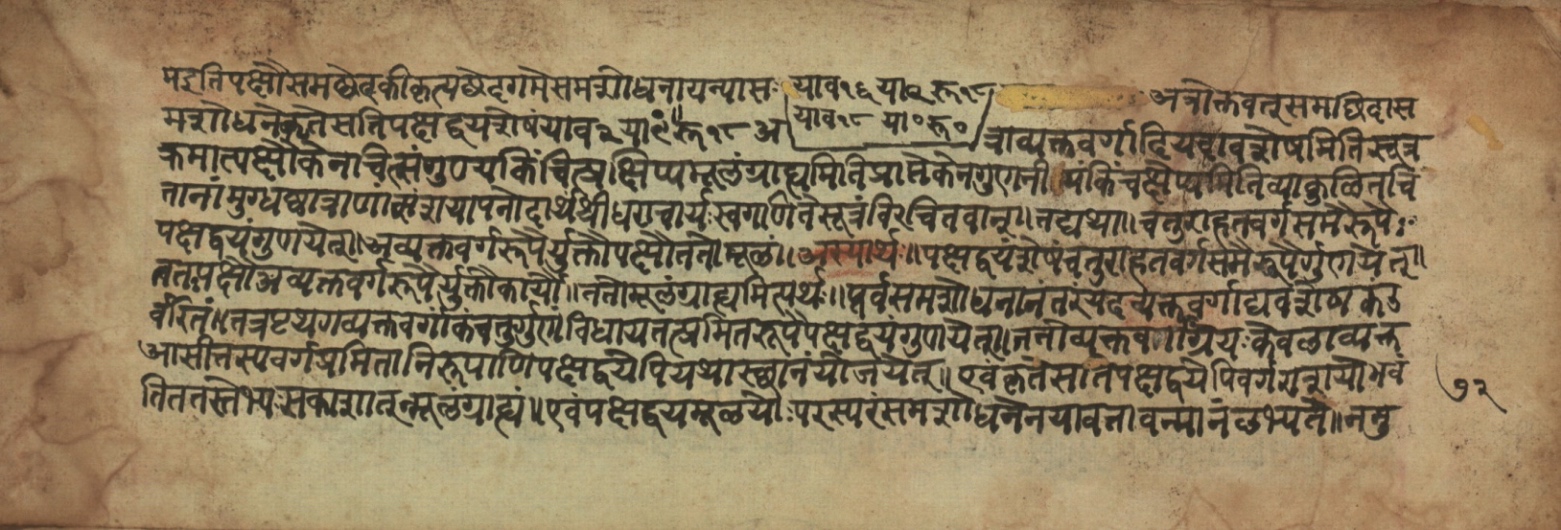 मइतिपक्षौसमच्छेदीकृत्यछेदगमेसमशोधनायन्यासः याव१६ या२ रू१८ अत्रोक्तवत्समच्छिदास
मशोधनेकृतेसतिपक्षद्वयशेषंयाव२ या९ रू१८ अ याव१८ या० रू० त्राव्यक्तवर्गादियदावशेषमितिसूत्र
क्रमात्पक्षौकेनाचित्संगुण्यकिंचित्प्रक्षिप्यमूलंग्राह्यमितिप्राप्तेकेनगुणनीयंकिंचक्षेप्यमितिव्याकुलितचि
त्तानांमुग्धछात्राणांसंशयापनोदार्थश्रीधराचार्यःस्वगणितेसूत्रंविरचितवान्॥तद्यथा॥चतुराहतवर्गसमैरूपैः
पक्षद्वयंगुणयेत्॥अव्यक्तवर्गरूपैर्युक्तौपक्षौततोमूलं॥अस्यार्थः॥पक्षद्वयंशेषंचतुराहतवर्गसमैरूपैर्गुणयेत्॥
ततःपक्षौअव्यक्तवर्गरूपैर्युक्तौकार्यौ॥ततोमूलंग्राह्यमित्यर्थः॥पूर्वसमशोधनानंतरंयदव्यक्तवर्गाद्यवशेष्यकंउ
र्वरितं॥तत्रष्टथगव्यक्तवर्गांकंचतुर्गुणंविधायतत्प्रमितरूपैःपक्षद्वयंगुणयेत्॥ततोव्यक्तवर्गाग्रेयःकेवलाव्यक्त
आसीत्तस्यवर्गप्रमितानिरूपाणिपक्षद्वयेपियथास्थानंयोजयेत्॥एवंकृतेसतिपक्षद्वयेपिवर्गराशयोभवं
तिततस्तेभ्यःसकाशात्मूलंग्राह्यं॥एवंपक्षद्वयमूलयोःपरस्परंसमशोधनेनयावत्तावन्मानंलभ्यते॥ननु
७२